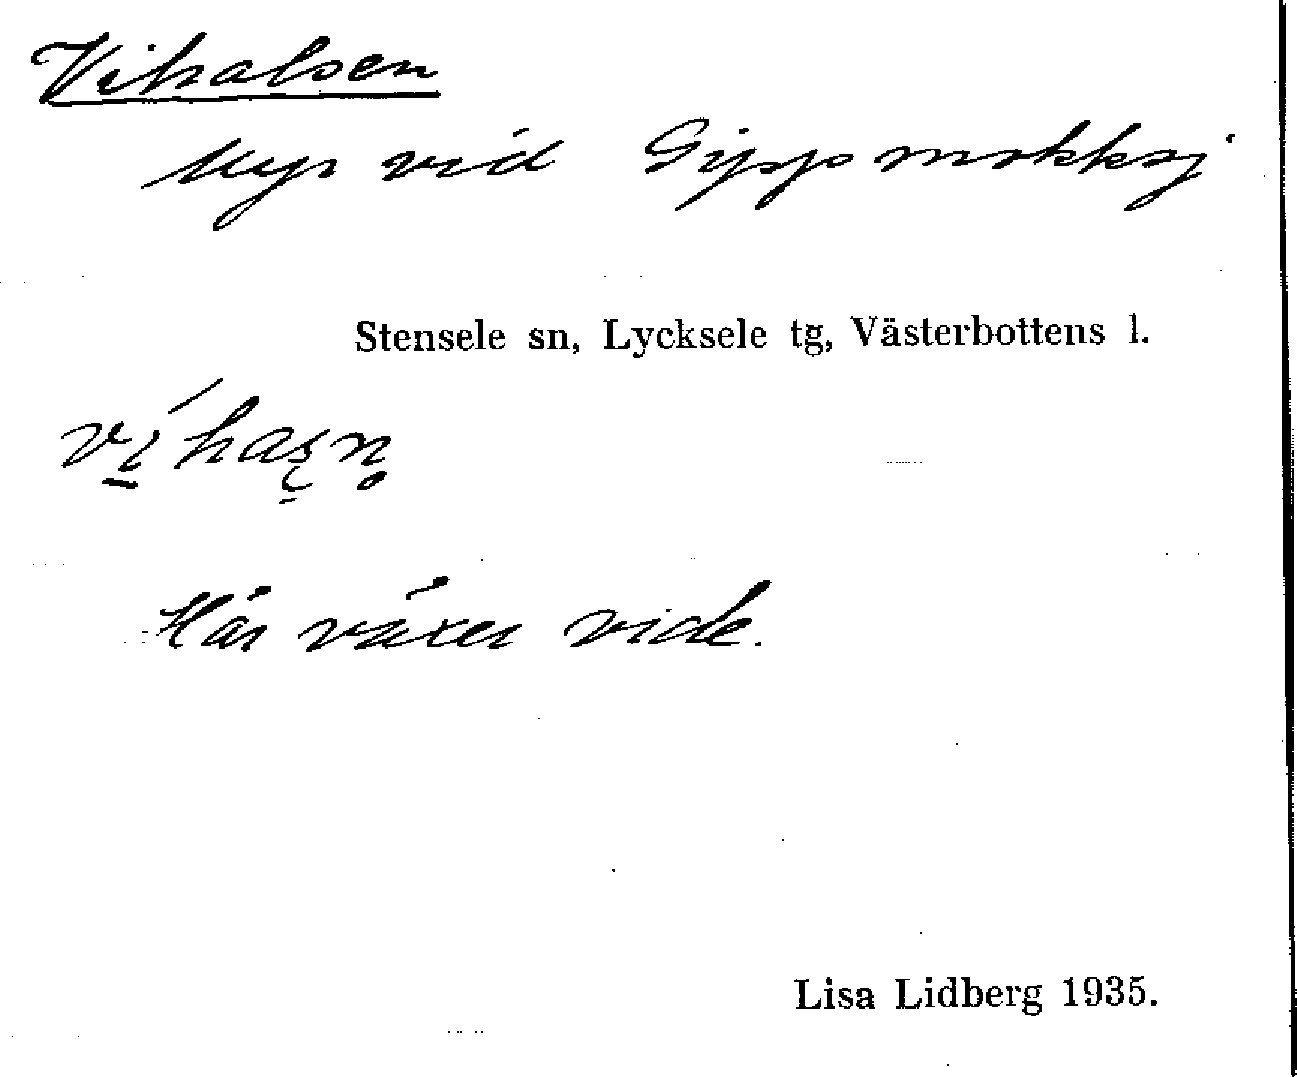 Vihalsen
Myr vid Gippmokksj
Stensele sn, Lycksele tg, Västerbottens l.
Här växer vide.
Lisa Lidberg 1935.